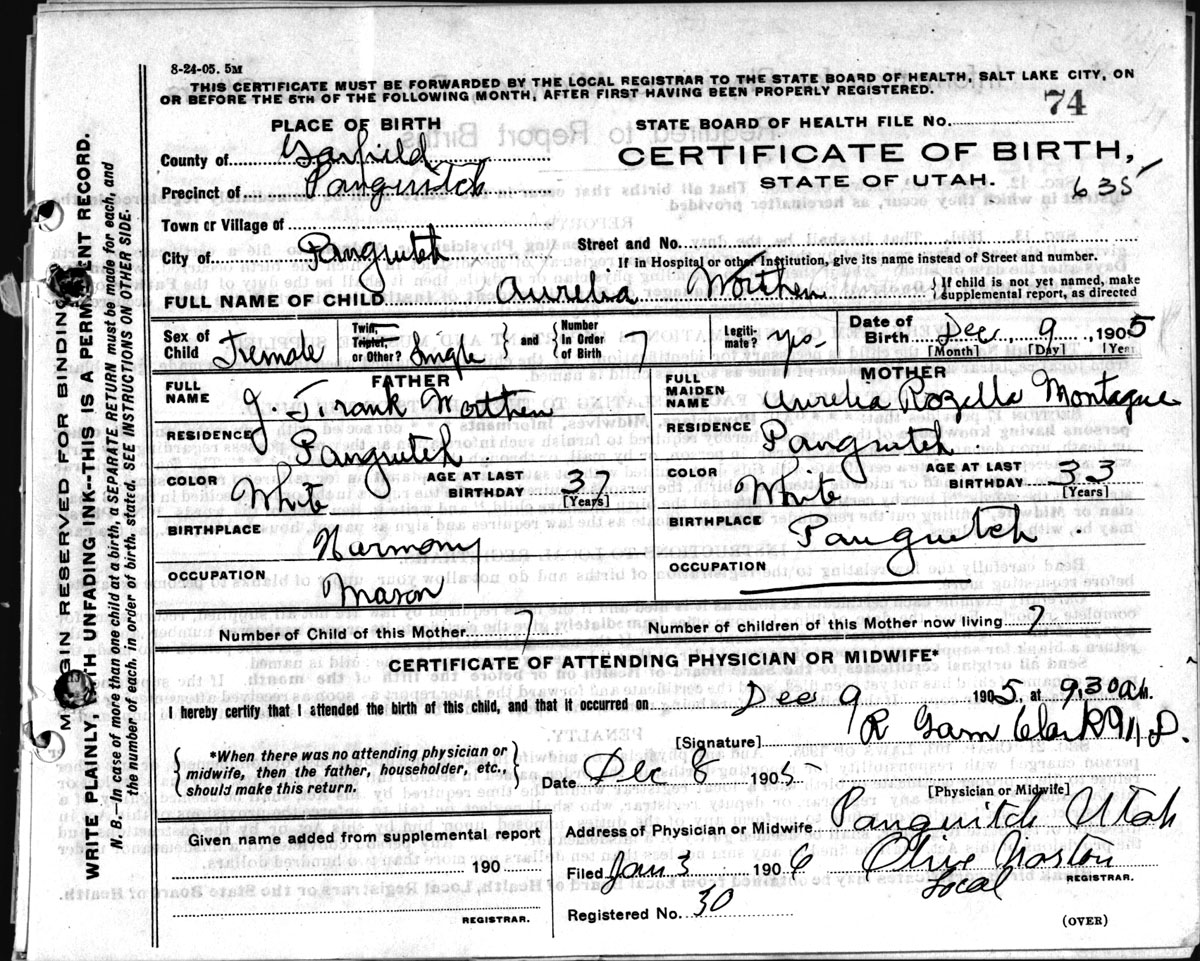 8-24-05. 5M
THIS CERTIFICATE MUST BE FORWARDED BY THE LOCAL REGISTRAR TO THE STATE BOARD OF HEALTH, SALT LAKE CITY, ON
OR BEFORE THE 5TH OF THE FOLLOWING MONTH, AFTER FIRST HAVING BEEN PROPERLY REGISTERED.
PLACE OF BIRTH
STATE BOARD OF HEALTH FILE No. 74
County of Garfield
CERTIFICATE OF BIRTH,
Precinct of Panguitch
STATE OF UTAH. 635
Town or Village of
City of Panguitch
Street and No.
If in Hospital or other Institution, give its name instead of Street and number.
FULL NAME OF CHILD Aurelia Worthen
{If child is not yet named, make
supplemental report, as directed
Sex of Child Female
Twin, Triplet, or Other? Single
and
Number In Order of Birth 7
Legiti-mate? yes
Date of Birth Dec 9 1905
[Month] [Day] [Year]
FATHER
FULL NAME J. Frank Worthen
RESIDENCE Panguitch
COLOR White
AGE AT LAST BIRTHDAY 37
[Years]
BIRTHPLACE Harmony
OCCUPATION Mason
MOTHER
FULL MAIDEN NAME Aurelia Rozella Montague
RESIDENCE Panguitch
COLOR White
AGE AT LAST BIRTHDAY 33
[Years]
BIRTHPLACE Panguitch
OCCUPATION
Number of Child of this Mother 7
Number of children of this Mother now living 7
CERTIFICATE OF ATTENDING PHYSICIAN OR MIDWIFE*
I hereby certify that I attended the birth of this child, and that it occurred on Dec 9 1905, at 9.30 a M.
[Signature] R Garn Clark M.D.
*When there was no attending physician or
midwife, then the father, householder, etc.,
should make this return.
Date Dec 8 1905
[Physician or Midwife]
Given name added from supplemental report
190
REGISTRAR.
Address of Physician or Midwife Panguitch Utah
Filed Jan 3 1906 Olive
Local REGISTRAR.
Registered No. 30
(OVER)
MARGIN RESERVED FOR BINDING
WRITE PLAINLY, WITH UNFADING INK--THIS IS A PERMANENT RECORD.
N. B.--In case of more than one child at a birth, a SEPARATE RETURN must be made for each, and
the number of each, in order of birth, stated. SEE INSTRUCTIONS ON OTHER SIDE.